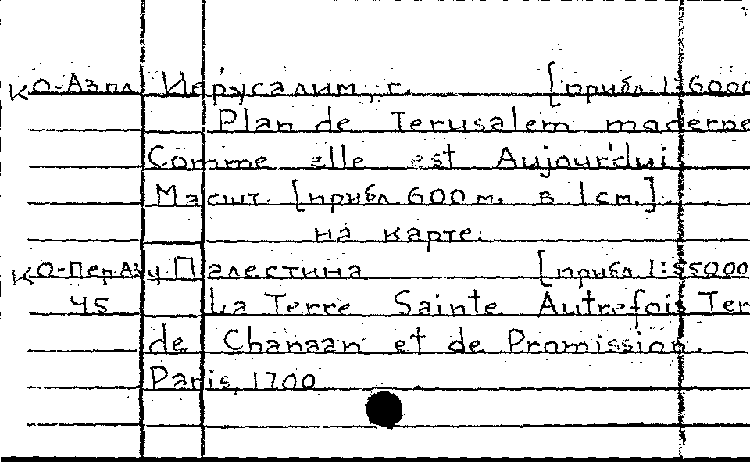 КО-Азпл Иерусалим, г. [прибл 1:6000
Plan de Jerusalem moderne
Comme elle est Aujour'dui
Масшт. [прибл 600 м. в 1 см.]
на карте.
КО-ПерАзу Палестина [прибл 1:55000
45 La Terre Sainte Autrefois Ter
de Chanaan et de Promission.
Paris, 1700